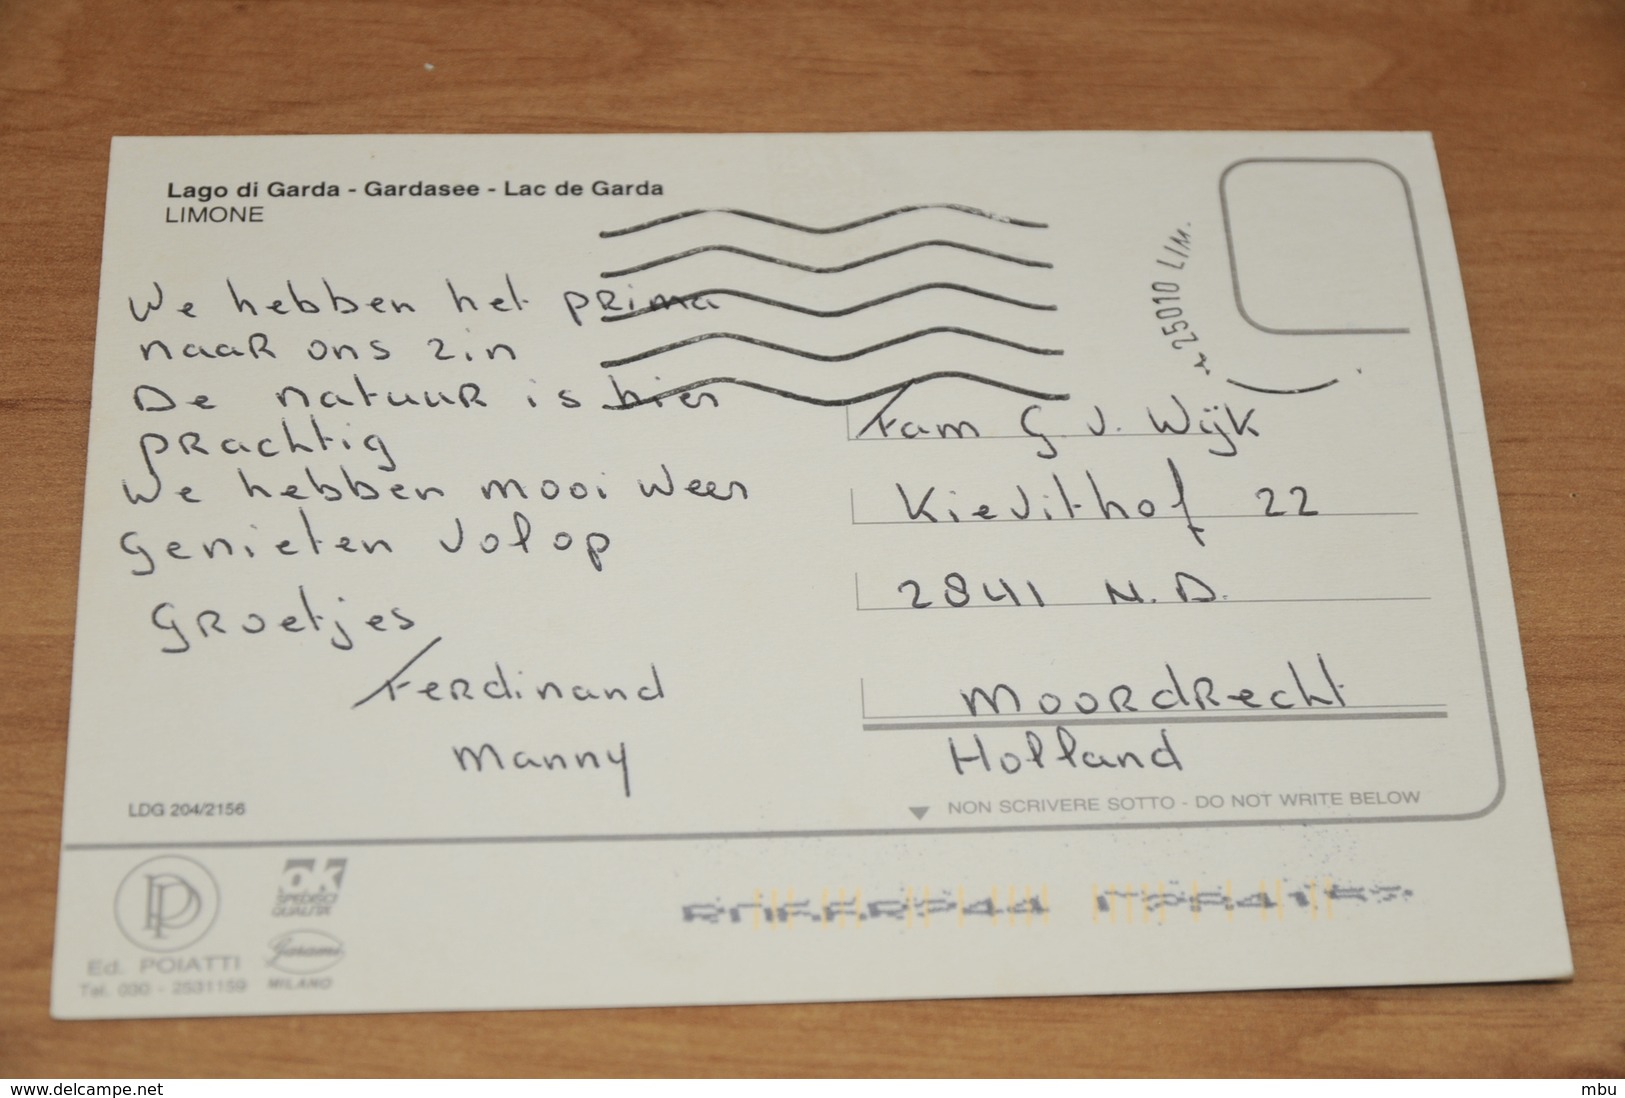 Lago di Garda - Gardasee - Lac de Garda
LIMONE
We hebben het prima
naar ons zin
De natuur is hier
prachtig
We hebben mooi weer
genieten volop
Groetjes
Ferdinand
Manny
25010 LIM.
Fam G v. Wijk
Kievithof 22
2841 N.D.
Moordrecht
Holland
LDG 204/2156
NON SCRIVERE SOTTO - DO NOT WRITE BELOW
Ed. POIATTI
Tel. 030 - 2531159
ok
QUALITA'
Garami
MILANO
www.delcampe.net
mbu